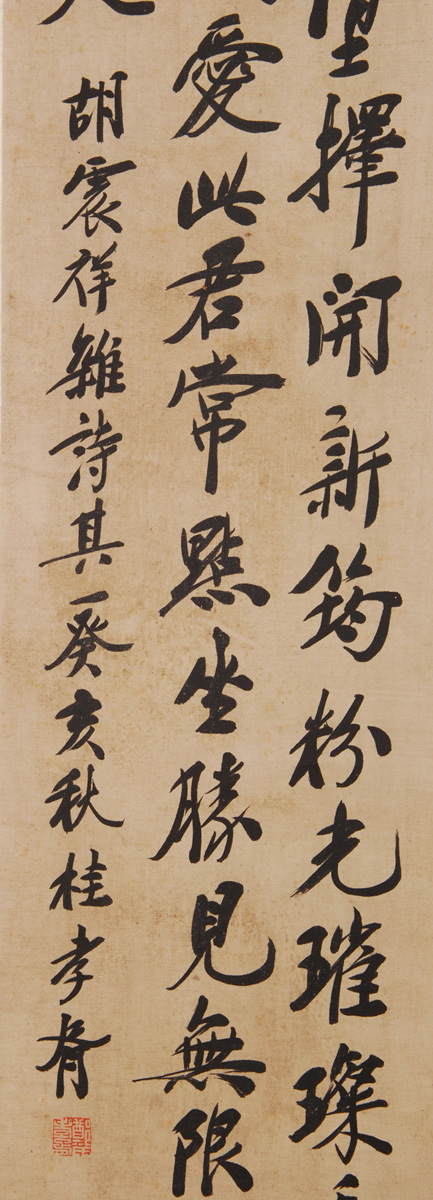 擇開新筠粉光璀璨
愛此君常黙坐勝見無限
胡震祥雜詩其一癸亥秋桂孝胥